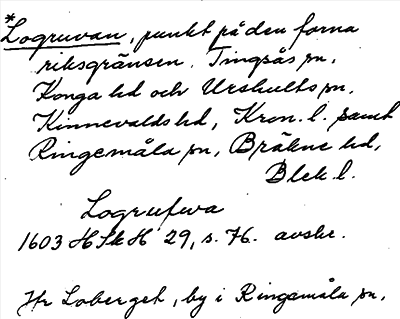 *Logruvan, punkt på den forna
riksgränsen. Tingsås sn,
Konga hd och Urshults sn,
Kinnevalds hd, Kron. l. samt
Ringemåla sn, Bräkne hd,
Blek l.
Logrufwa
1603 HSkH 29, s. 76. avskr.
Hr Loberget, by i Ringamåla sn,